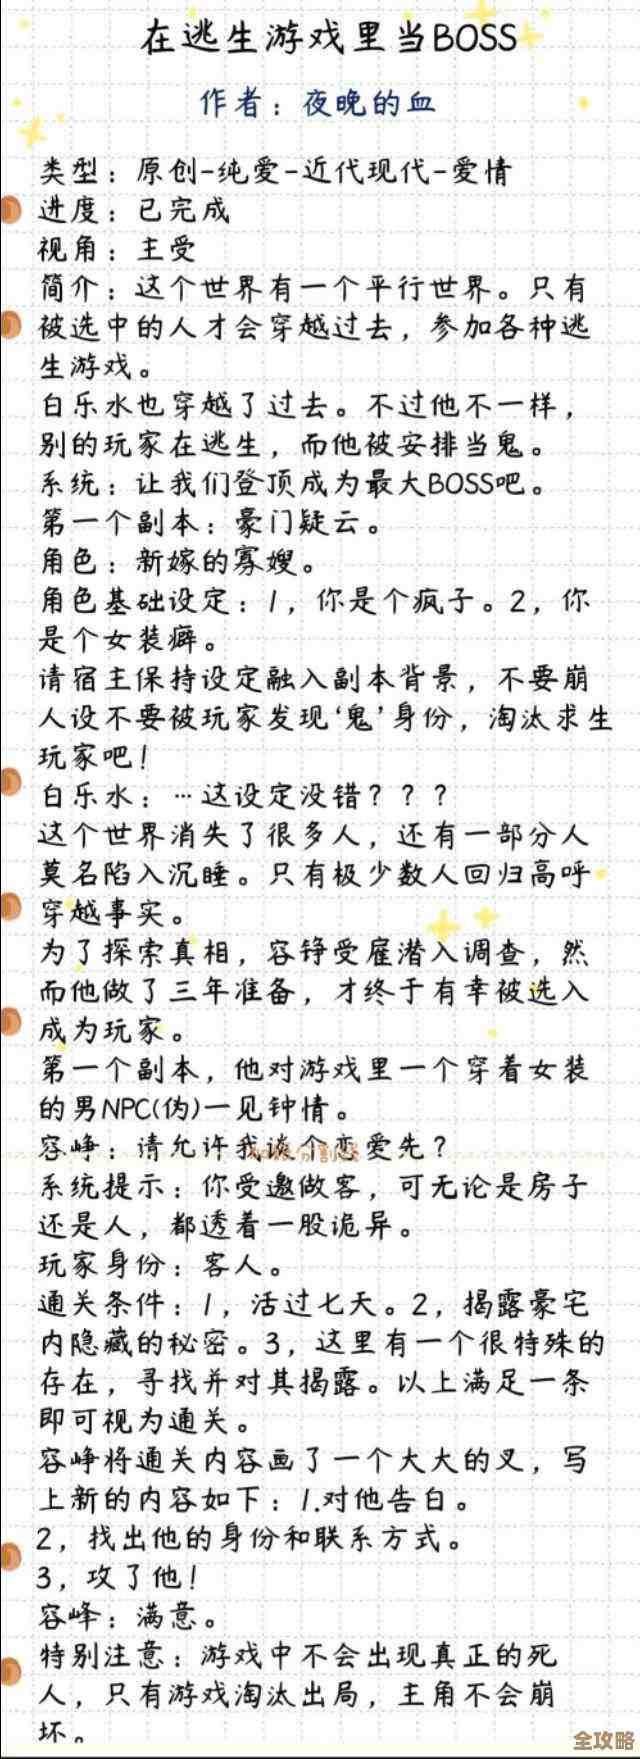 在逃生游戏里当BOSS
作者：夜晚的血
类型：原创-纯爱-近代现代-爱情
进度：已完成
视角：主受
简介：这个世界有一个平行世界。只有
被选中的人才会穿越过去，参加各种逃
生游戏。
白乐水也穿越了过去。不过他不一样，
别的玩家在逃生，而他被安排当鬼。
系统：让我们登顶成为最大BOSS吧。
第一个副本：豪门疑云。
角色：新嫁的寡嫂。
角色基础设定：1，你是个疯子。2，你
是个女装癖。
请宿主保持设定融入副本背景，不要崩
人设不要被玩家发现‘鬼’身份，淘汰求生
玩家吧！
白乐水：…这设定没错？？？
这个世界消失了很多人，还有一部分人
莫名陷入沉睡。只有极少数人回归高呼
穿越事实。
为了探索真相，容铮受雇潜入调查，然
而他做了三年准备，才终于有幸被选入
成为玩家。
第一个副本，他对游戏里一个穿着女装
的男NPC(伪)一见钟情。
容峥：请允许我谈个恋爱先？
系统提示：你受邀做客，可无论是房子
还是人，都透着一股诡异。
玩家身份：客人。
通关条件：1，活过七天。2，揭露豪宅
内隐藏的秘密。3，这里有一个很特殊的
存在，寻找并对其揭露。以上满足一条
即可视为通关。
容峥将通关内容画了一个大大的叉，写
上新的内容如下：1.对他告白。
2，找出他的身份和联系方式。
3，攻了他！
容峰：满意。
特别注意：游戏中不会出现真正的死
人，只有游戏淘汰出局，主角不会崩
坏。
全攻略